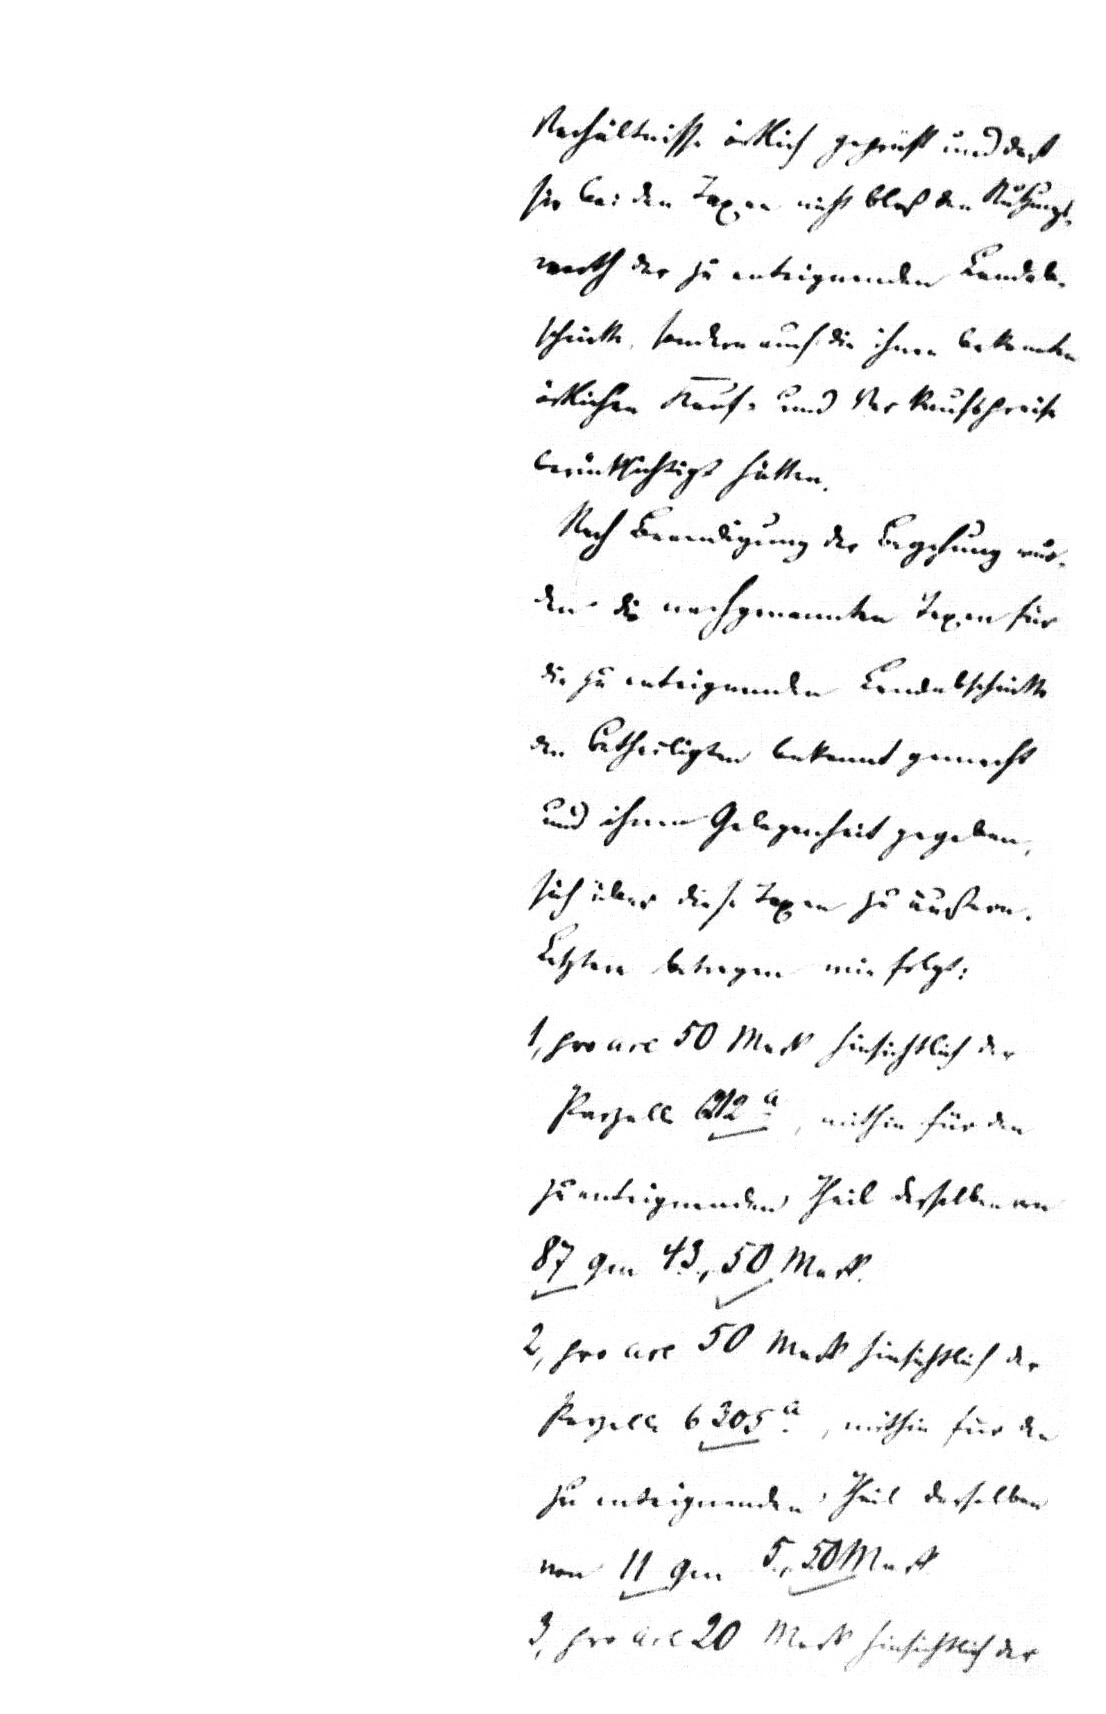 Verhältnisse örtlich geprüft und daß
sie bei den Taxen nicht bloß den Nutzungs-
werth der zu enteignenden Landab-
schnitte, sondern auch die ihnen bekannten
örtlichen Kauf- und Verkaufspreise
berücksichtigt hätten.
Nach Beendigung der Begehung wur-
den die nachgenannten Taxen für
die zu enteignenden Landabschnitte
den Betheiligten bekannt gemacht
und ihnen Gelegenheit gegeben,
sich über diese Taxen zu äußern.
Letztere betragen wie folgt:
1, pro are 50 Mark hinsichtlich der
Parzelle a, mithin für den
zu enteignenden Theil derselben von
87 qm 43,50 Mark.
2, pro are 50 Mark hinsichtlich der
Parzelle 6305 a, mithin für den
zu enteignenden Theil derselben
von 11 qm 5,50 Mark
3, pro are 20 Mark hinsichtlich der